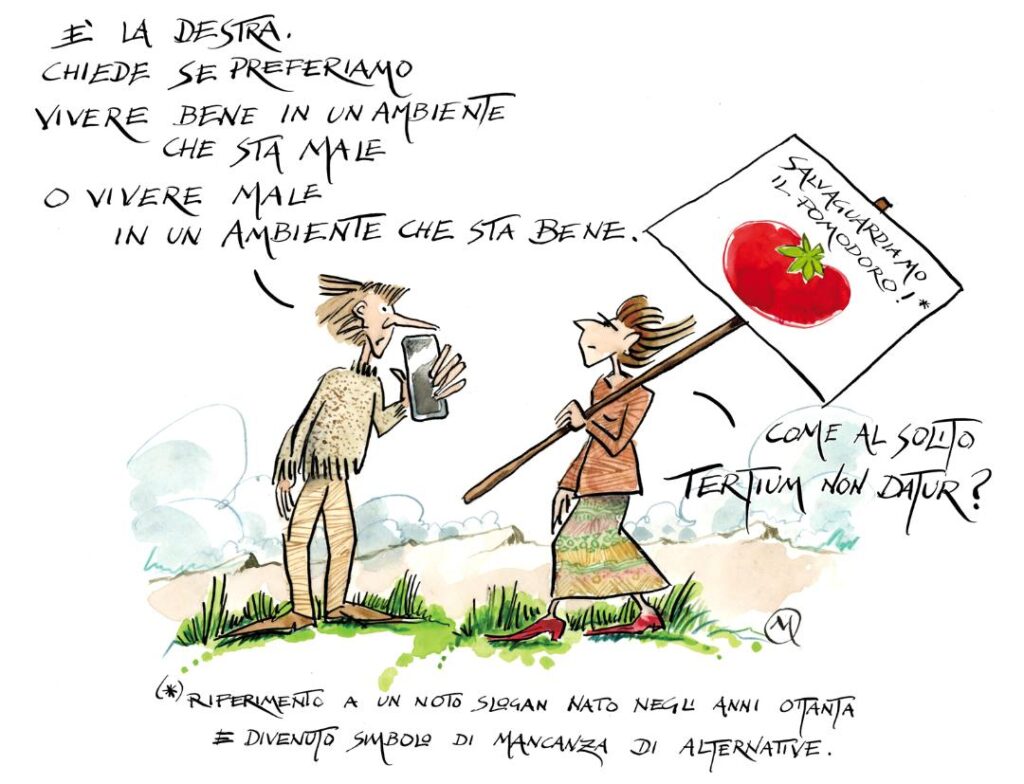 È LA DESTRA.
CHIEDE SE PREFERIAMO
VIVERE BENE IN UN AMBIENTE
CHE STA MALE
O VIVERE MALE
IN UN AMBIENTE CHE STA BENE.
SALVAGUARDIAMO
IL POMODORO! *
COME AL SOLITO
TERTIUM NON DATUR?
(*) RIFERIMENTO A UN NOTO SLOGAN NATO NEGLI ANNI OTTANTA
E DIVENUTO SIMBOLO DI MANCANZA DI ALTERNATIVE.